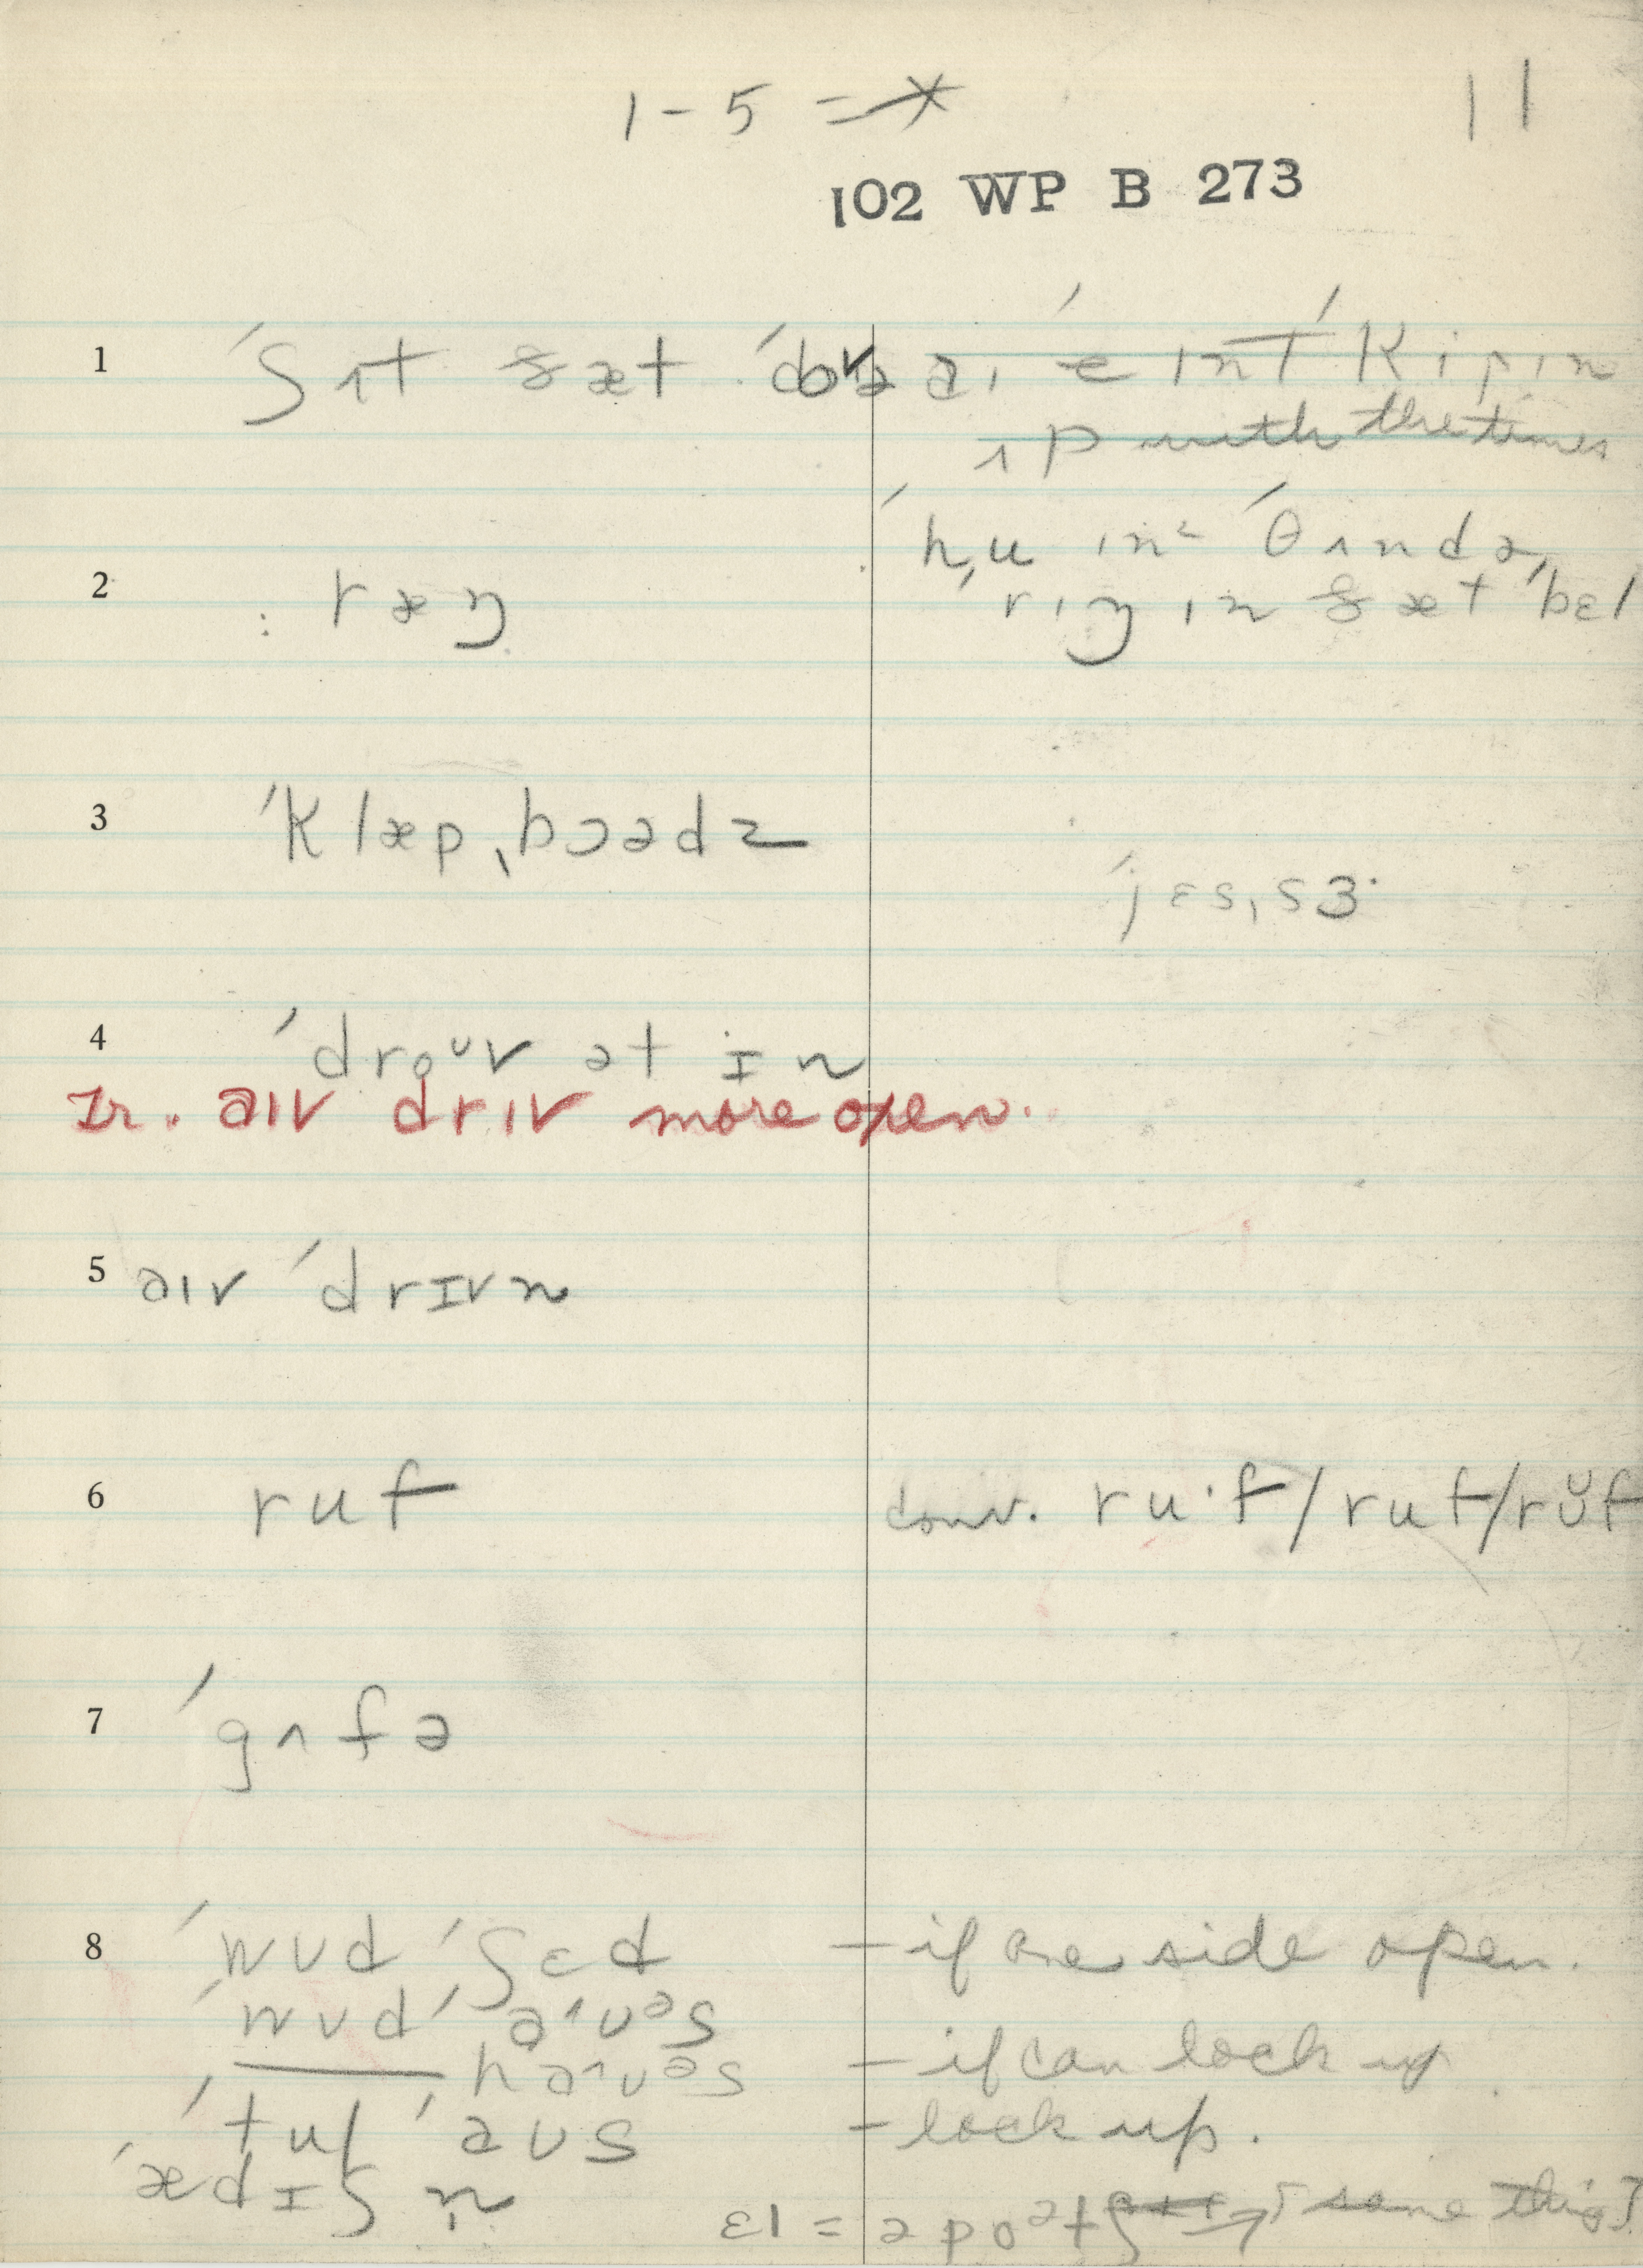 1 - 5 =
11
102 WP B 273
1 ˈʃʌt ðæt ˈdoə
ˈkipɪn
ʌp with the times
ˈθʌndə
2 : ræŋ
ˌrɪŋɪn ðæt ˈbɛl
3 ˈklæpˌbɔədz
ˈjɛs, sɜ·
4 ˈdroᵘv ət ɪn
Ir. aɪv drɪv more open.
5 əɪv ˈdrɪvn
6 ruf conv. ru·f / ruf / rʊ̆f
7 ˈgʌfə
8 ˈwʊd ˈʃɛd – if one side open.
ˈwʊd ˈaʊᵊs
haʊᵊs – if can lock up
ˈtul ˈaʊs – lock up.
ˈædɪʃn̩
ɛl = [same thing]